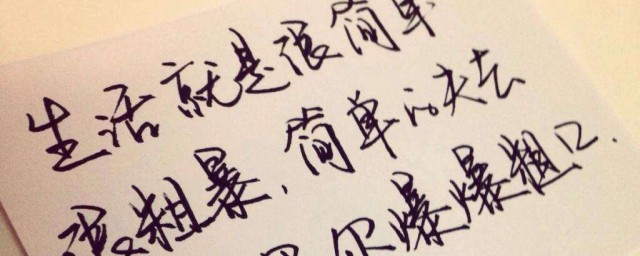 生活就是很简单
很粗暴，简单的失去
尔爆爆粗口.